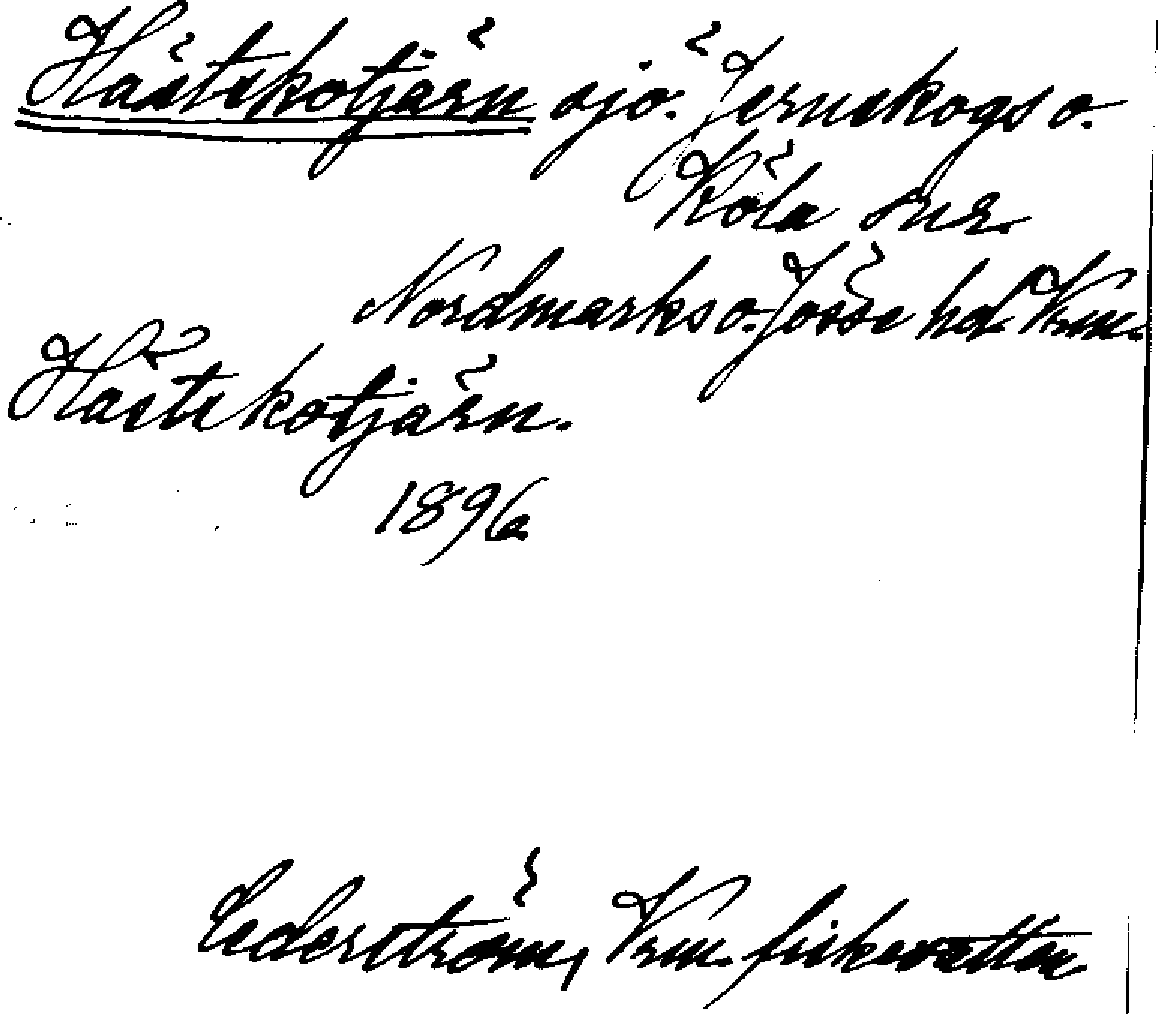 Hästskotjärn sjö. Jernskogs o.
Köla snr.
Nordmarks o. Jösse hd Vrm.
Hästskotjärn.
1896
Cederström, Vrm. fiskevatten